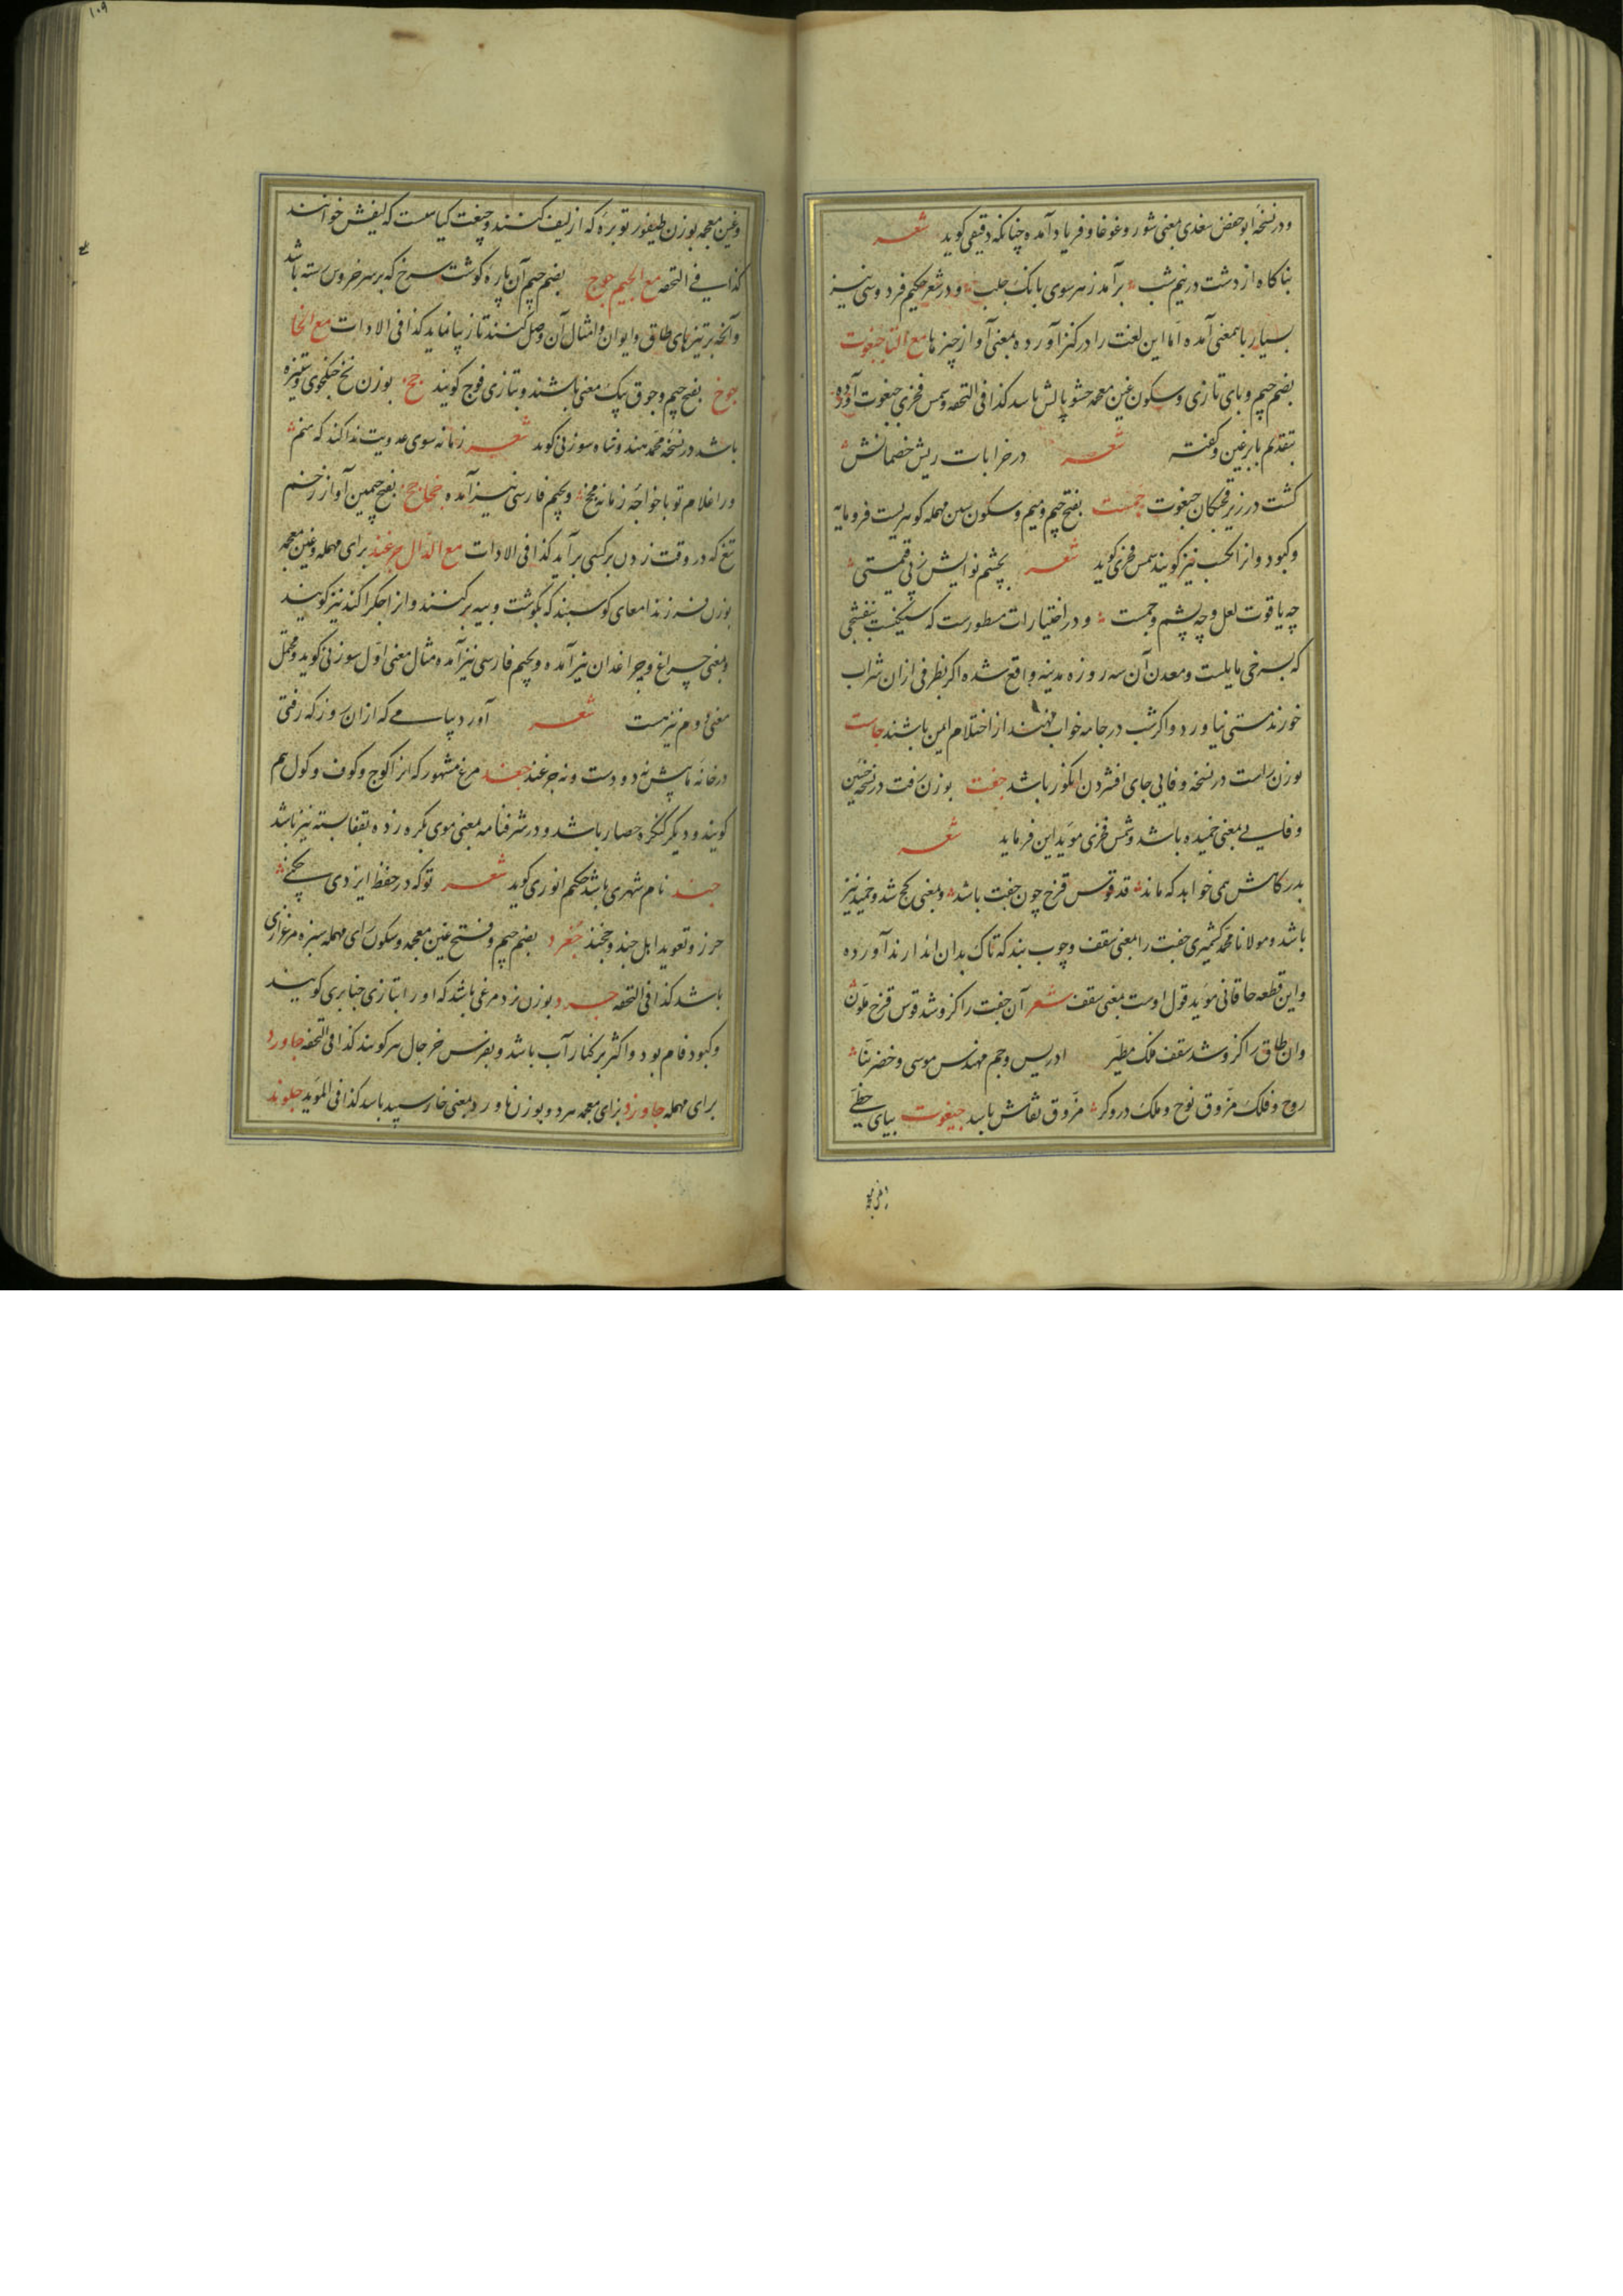 ودر نسخه ابو حفص سغدی بمعنی شور و غوغا و فریاد آمده چنانکه دقیقی کوید شعر
بناکاه از دشت در نیم شب برآمد ز هر سوی بانک جلب و در شعر حکیم فردوسی نیز
بسیار باین معنی آمده اما این لغت را در کنز آورده بمعنی آواز چیزها مع التا جبغوت
بضم جیم و بای تازی و سکون غین معجمه حشو بالش باشد کذا فی التحفه و شمس فخری جبغوت آورده
بتقدیم با بر غین و کفته شعر در خرابات ریش خصمانش
کشت در زیر قحبکان جبغوت جمست بفتح جیم و میم و سکون سین مهمله کوهریست فرومایه
و کبود و انرا کمست نیز کویند شمس فخری کوید شعر بچشم نوایش ز بی قیمتی
چه یاقوت لعل و چه پشم و جمست و در اختیارات مسطورست که سنکیست بنفشجی
که بسرخی مایلست و معدن آن سه روزه مدینه واقع شده اکر بظرفی ازان شراب
خورند مستی نیاورد و اکر شب در جامه خواب نهند از احتلام ایمن باشند جاست
بوزن راست در نسخه وفایی جای افشردن انکور باشد جفت بوزن رفت در نسخه حسین
وفایی بمعنی خمیده باشد و شمس فخری موید این فرماید شعر
بدرکاهش همی خواهد که ماند قد قوس قزح چون جفت باشد و بمعنی کج شد و خمید نیز
باشد و مولانا محمد کشمیری جفت را بمعنی سقف و چوب بند که تاک بدان اندازند آورده
و این قطعه خاقانی موید قول اوست بمعنی سقف شعر آن جفت را کزو شد قوس قزح ملون
وان طاق را کزو شد سقف فلک مطیر ادریس و جم مهندس موسی و خضر بنا
روح و فلک مزوق نوح و ملک دروکر مزوق نقاش باشد جیغوت بیای حطی
وغین معجمه بوزن طیفور توبره که از لیف کنند و جیغت کیاست که لیفش خوانند
کذا فی التحفه مع الجیم جوج بضم جیم آن پاره کوشت سرخ که بر سر خروس رسته باشد
و آنچه بر تیزهای طاق و ایوان و امثال آن وصل کنند تا زیبا نماید کذا فی الادات مع الخا
جوخ بفتح جیم و جوق یک معنی باشند و بتازی فوج کویند جخ بوزن نخ جنکجوی و ستیزه
باشد در نسخه محمد هندوشاه سوزنی کوید شعر زمانه سوی عدویت ندا کند که منم
ورا غلام تو با خواجه زمانه مجخ و بجیم فارسی نیز آمده جخاجخ بفتح جیمین آواز زخم
تیغ که در وقت زدن بر کسی برآید کذا فی الادات مع الدال جرغند برای مهمله و غین معجمه
بوزن فرزند امعای کوسبند که بکوشت و بیه بر کنند و انرا جکرآکند نیز کویند
و بمعنی چراغ و چراغدان نیز آمده و بجیم فارسی نیز آمده مثال معنی اول سوزنی کوید و محتمل
معنی دوم نیز هست شعر آورد پیامی که ازان روز که رفتی
در خانه ما پیش نه دودست و نه جرغند جغد مرغ مشهور که انرا کوج و کوف و کول هم
کویند و دیکر کنکره حصار باشد و در شرفنامه بمعنی موی کره زده بقفا بسته نیز باشد
جند نام شهری باشد حکیم انوری کوید شعر توکه در حفظ ایزدی چکنی
حرز و تعوید اهل جند و خجند جغرد بضم جیم و فتح غین معجمه و سکون رای مهمله سبزه مرغزاری
باشد کذا فی التحفه جرد بوزن نرد مرغی باشد که او را بتازی حباری کویند
و کبود فام بود و اکثر بر کنار آب باشد و بفرس خرجال هم کویند کذا فی التحفه جاورد
برای مهمله جاوزد بزای معجمه هر دو بوزن ناورد بمعنی خار سپید باشد کذا فی المؤید جلوند